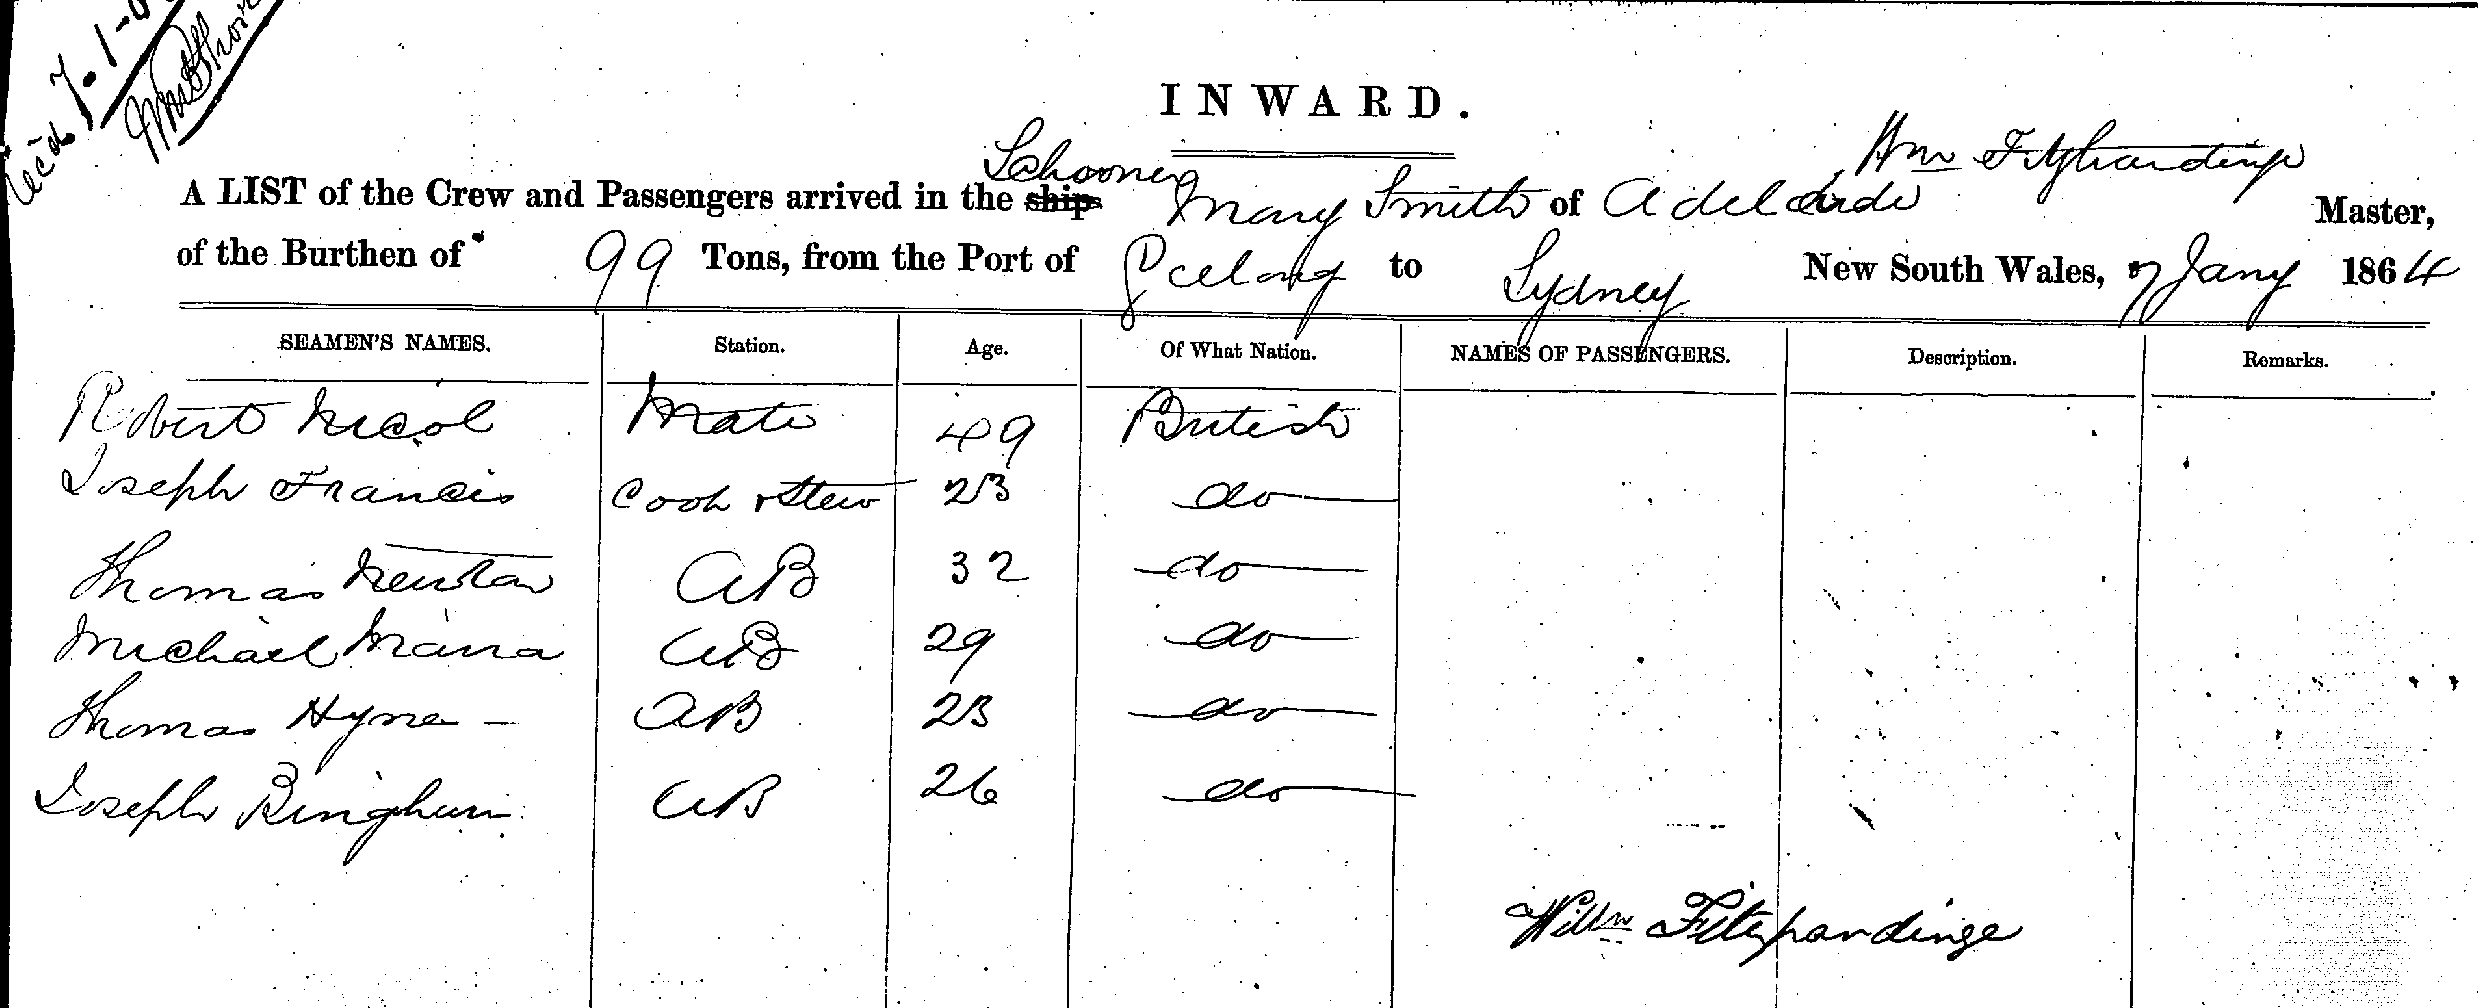 Recd 7-1-
INWARD.
Schooner Wm Fitzhardinge
A LIST of the Crew and Passengers arrived in the ships Mary Smith of Adelaide Master,
of the Burthen of 99 Tons, from the Port of Geelong to Sydney New South Wales, 7 Jany 1864
SEAMEN'S NAMES. Station. Age. Of What Nation. NAMES OF PASSENGERS. Description. Remarks.
Robert Nicol Mate 49 British
Joseph Francis Cook & Stew 23 do
Thomas Newton AB 32 do
Michael AB 29 do
Thomas Hyne AB 23 do
Joseph Bingham AB 26 do
Willm Fitzhardinge